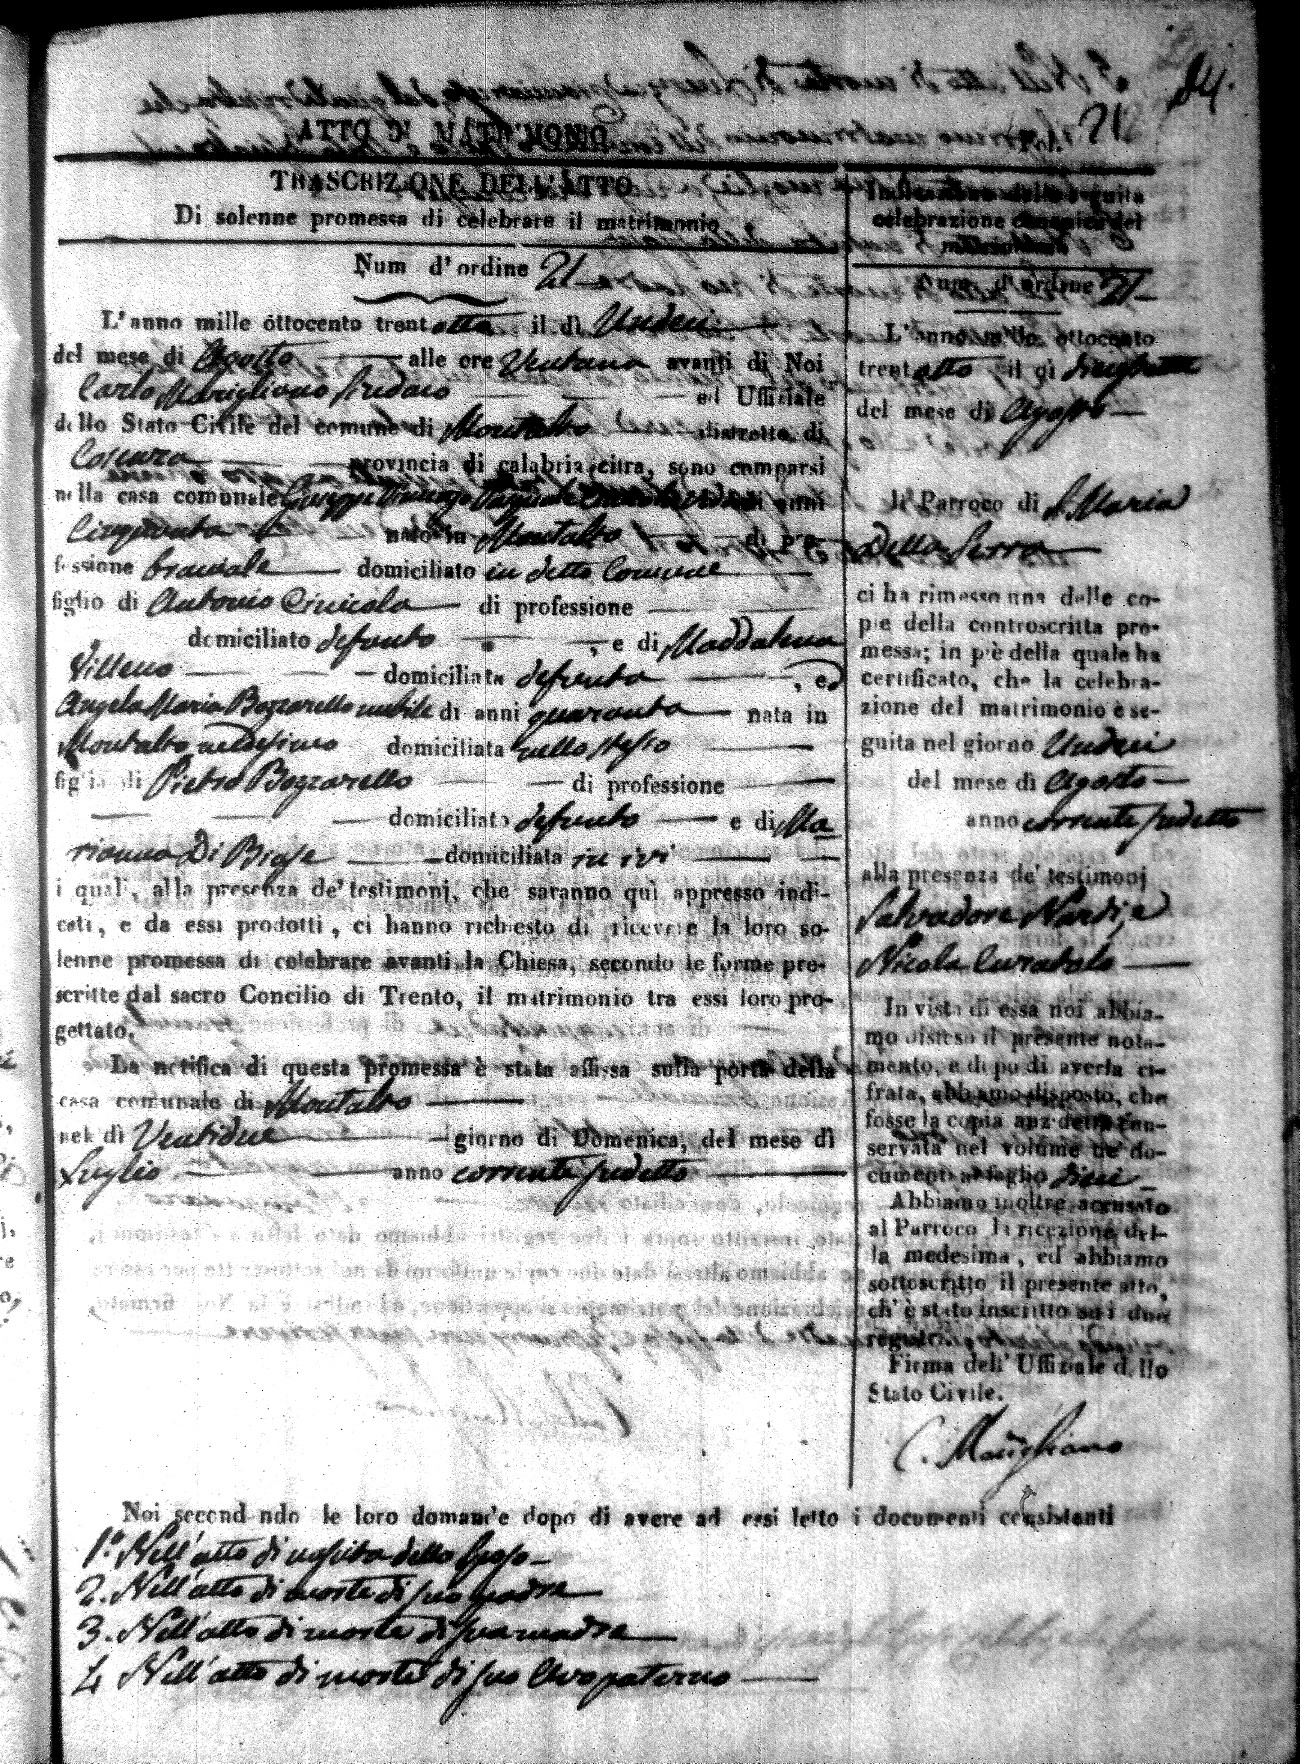 84.
21
ATTO DI MATRIMONIO
TRASCRIZIONE DELL'ATTO
Di solenne promessa di celebrare il matrimonio
Num d'ordine 21
L'anno mille ottocento trentotto il dì Undeci
del mese di Agosto alle ore Ventuna avanti di Noi
Carlo Marigliano Sindaco ed Uffiziale
dello Stato Civile del comune di Montalto distretto di
Cosenza provincia di calabria citra, sono comparsi
nella casa comunale Giuseppe di anni
Cinquanta nato in Montalto di pro
fessione bracciale domiciliato in detto Comune
figlio di Antonio Cinicola di professione
domiciliato defunto , e di Maddalena
Villeno domiciliata defunta , ed
Angela Maria Bozzarello nubile di anni quaranta nata in
Montalto medesimo domiciliata nello stesso
figlia di Pietro Bozzarello di professione
domiciliato defunto e di Ma
rianna Di Biase domiciliata in ivi
i quali, alla presenza de' testimonj, che saranno quì appresso indi-
cati, e da essi prodotti, ci hanno richiesto di ricevere la loro so-
lenne promessa di celebrare avanti la Chiesa, secondo le forme pre-
scritte dal sacro Concilio di Trento, il matrimonio tra essi loro pro-
gettato.
La notifica di questa promessa è stata affissa sulla porta della
casa comunale di Montalto
nel dì Ventidue giorno di Domenica, del mese di
Luglio anno corrente sudetto
Indicazione della seguita
celebrazione canonica del
matrimonio
Num d'ordine 21
L'anno mille ottocento
trentotto il dì diecisette
del mese di Agosto
Il Parroco di S. Maria
Della Serra
ci ha rimesso una delle co-
pie della controscritta pro-
messa; in piè della quale ha
certificato, che la celebra-
zione del matrimonio è se-
guita nel giorno Undeci
del mese di Agosto
anno corrente sudetto
alla presenza de' testimonj
Salvadore Nardi, e
Nicola Curatolo
In vista di essa noi abbia-
mo disteso il presente nota-
mento, e dipo di averla ci-
frata, abbiamo disposto, che
fosse la copia anzidetta con-
servata nel volume de' do-
cumenti al foglio dieci
Abbiamo inoltre accusato
al Parroco la ricezione del-
la medesima, ed abbiamo
sottoscritto il presente atto,
ch' è stato inscritto su i due
registri.
Firma dell' Uffiziale dello
Stato Civile.
C. Marigliano
Noi secondando le loro domande dopo di avere ad essi letto i documenti consistenti
1.º Nell'atto di nascita dello Sposo
2. Nell'atto di morte di suo padre
3. Nell'atto di morte di sua madre
4 Nell'atto di morte di suo Avo paterno